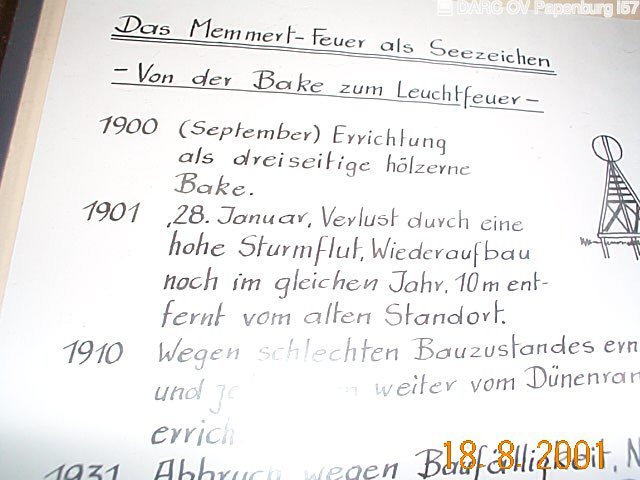 DARC OV Papenburg I57
Das Memmert-Feuer als Seezeichen
- Von der Bake zum Leuchtfeuer -
1900 (September) Errichtung
als dreiseitige hölzerne
Bake.
1901 28. Januar, Verlust durch eine
hohe Sturmflut, Wiederaufbau
noch im gleichen Jahr, 10 m ent-
fernt vom alten Standort.
1910 Wegen schlechten Bauzustandes ern
und weiter vom Dünenran
errich
1931 Abbruch wegen Baufälligkeit, N
18. 8. 2001